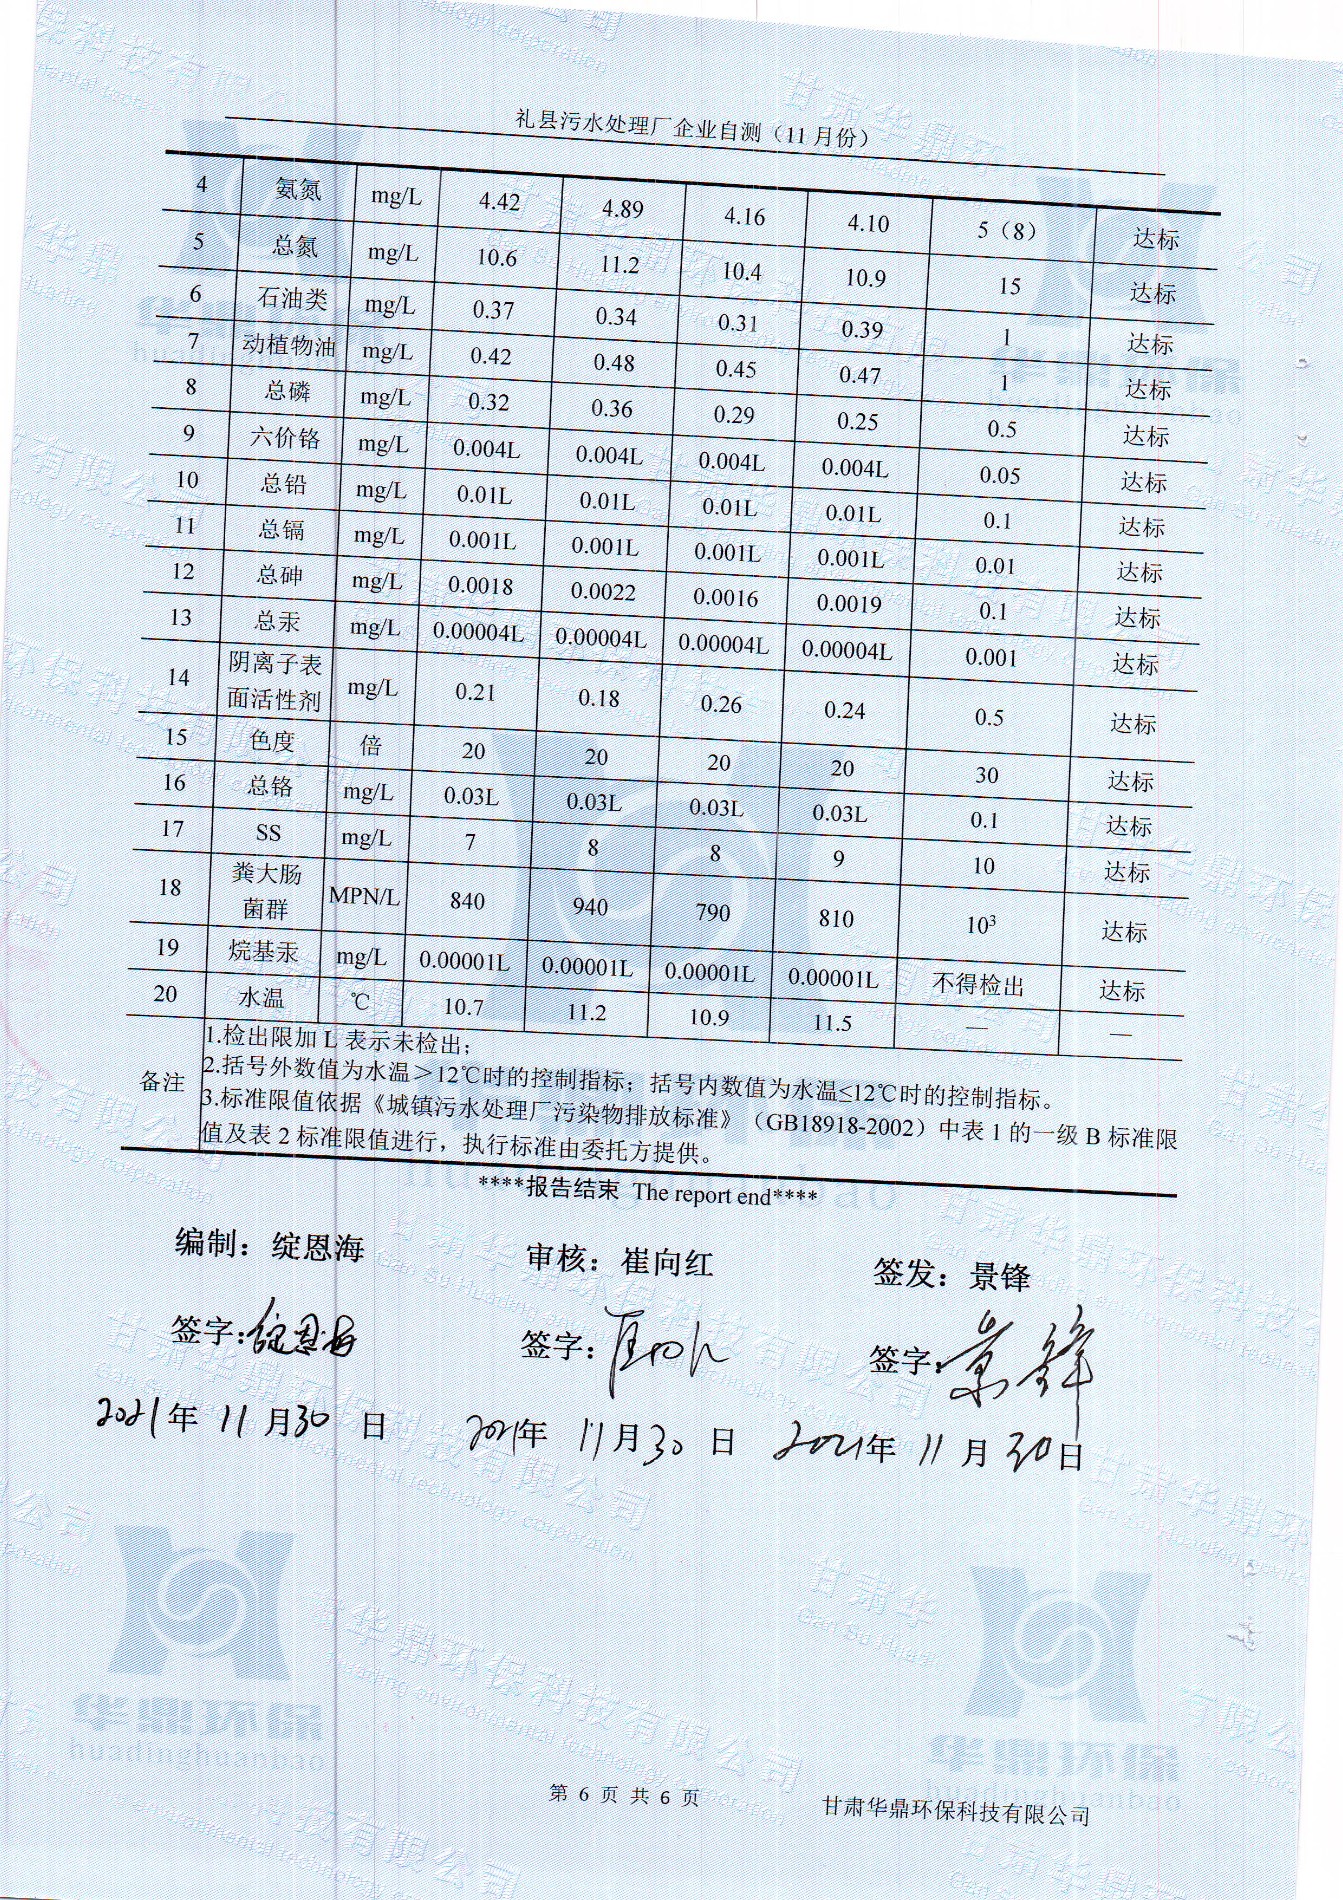 礼县污水处理厂企业自测（11月份）
4 氨氮 mg/L 4.42 4.89 4.16 4.10 5（8） 达标
5 总氮 mg/L 10.6 11.2 10.4 10.9 15 达标
6 石油类 mg/L 0.37 0.34 0.31 0.39 1 达标
7 动植物油 mg/L 0.42 0.48 0.45 0.47 1 达标
8 总磷 mg/L 0.32 0.36 0.29 0.25 0.5 达标
9 六价铬 mg/L 0.004L 0.004L 0.004L 0.004L 0.05 达标
10 总铅 mg/L 0.01L 0.01L 0.01L 0.01L 0.1 达标
11 总镉 mg/L 0.001L 0.001L 0.001L 0.001L 0.01 达标
12 总砷 mg/L 0.0018 0.0022 0.0016 0.0019 0.1 达标
13 总汞 mg/L 0.00004L 0.00004L 0.00004L 0.00004L 0.001 达标
14 阴离子表
面活性剂 mg/L 0.21 0.18 0.26 0.24 0.5 达标
15 色度 倍 20 20 20 20 30 达标
16 总铬 mg/L 0.03L 0.03L 0.03L 0.03L 0.1 达标
17 SS mg/L 7 8 8 9 10 达标
18 粪大肠
菌群 MPN/L 840 940 790 810 10³ 达标
19 烷基汞 mg/L 0.00001L 0.00001L 0.00001L 0.00001L 不得检出 达标
20 水温 ℃ 10.7 11.2 10.9 11.5 — —
备注
1.检出限加 L 表示未检出；
2.括号外数值为水温＞12℃时的控制指标；括号内数值为水温≤12℃时的控制指标。
3.标准限值依据《城镇污水处理厂污染物排放标准》（GB18918-2002）中表 1 的一级 B 标准限
值及表 2 标准限值进行，执行标准由委托方提供。
****报告结束 The report end****
编制：绽恩海 审核：崔向红 签发：景锋
签字：绽恩海 签字： 签字：景锋
2021年 11 月 30 日 2021年 11 月 30 日 2021年 11 月 30 日
华鼎环保
huadinghuanbao
华鼎环保
huadinghuanbao
第 6 页 共 6 页
甘肃华鼎环保科技有限公司